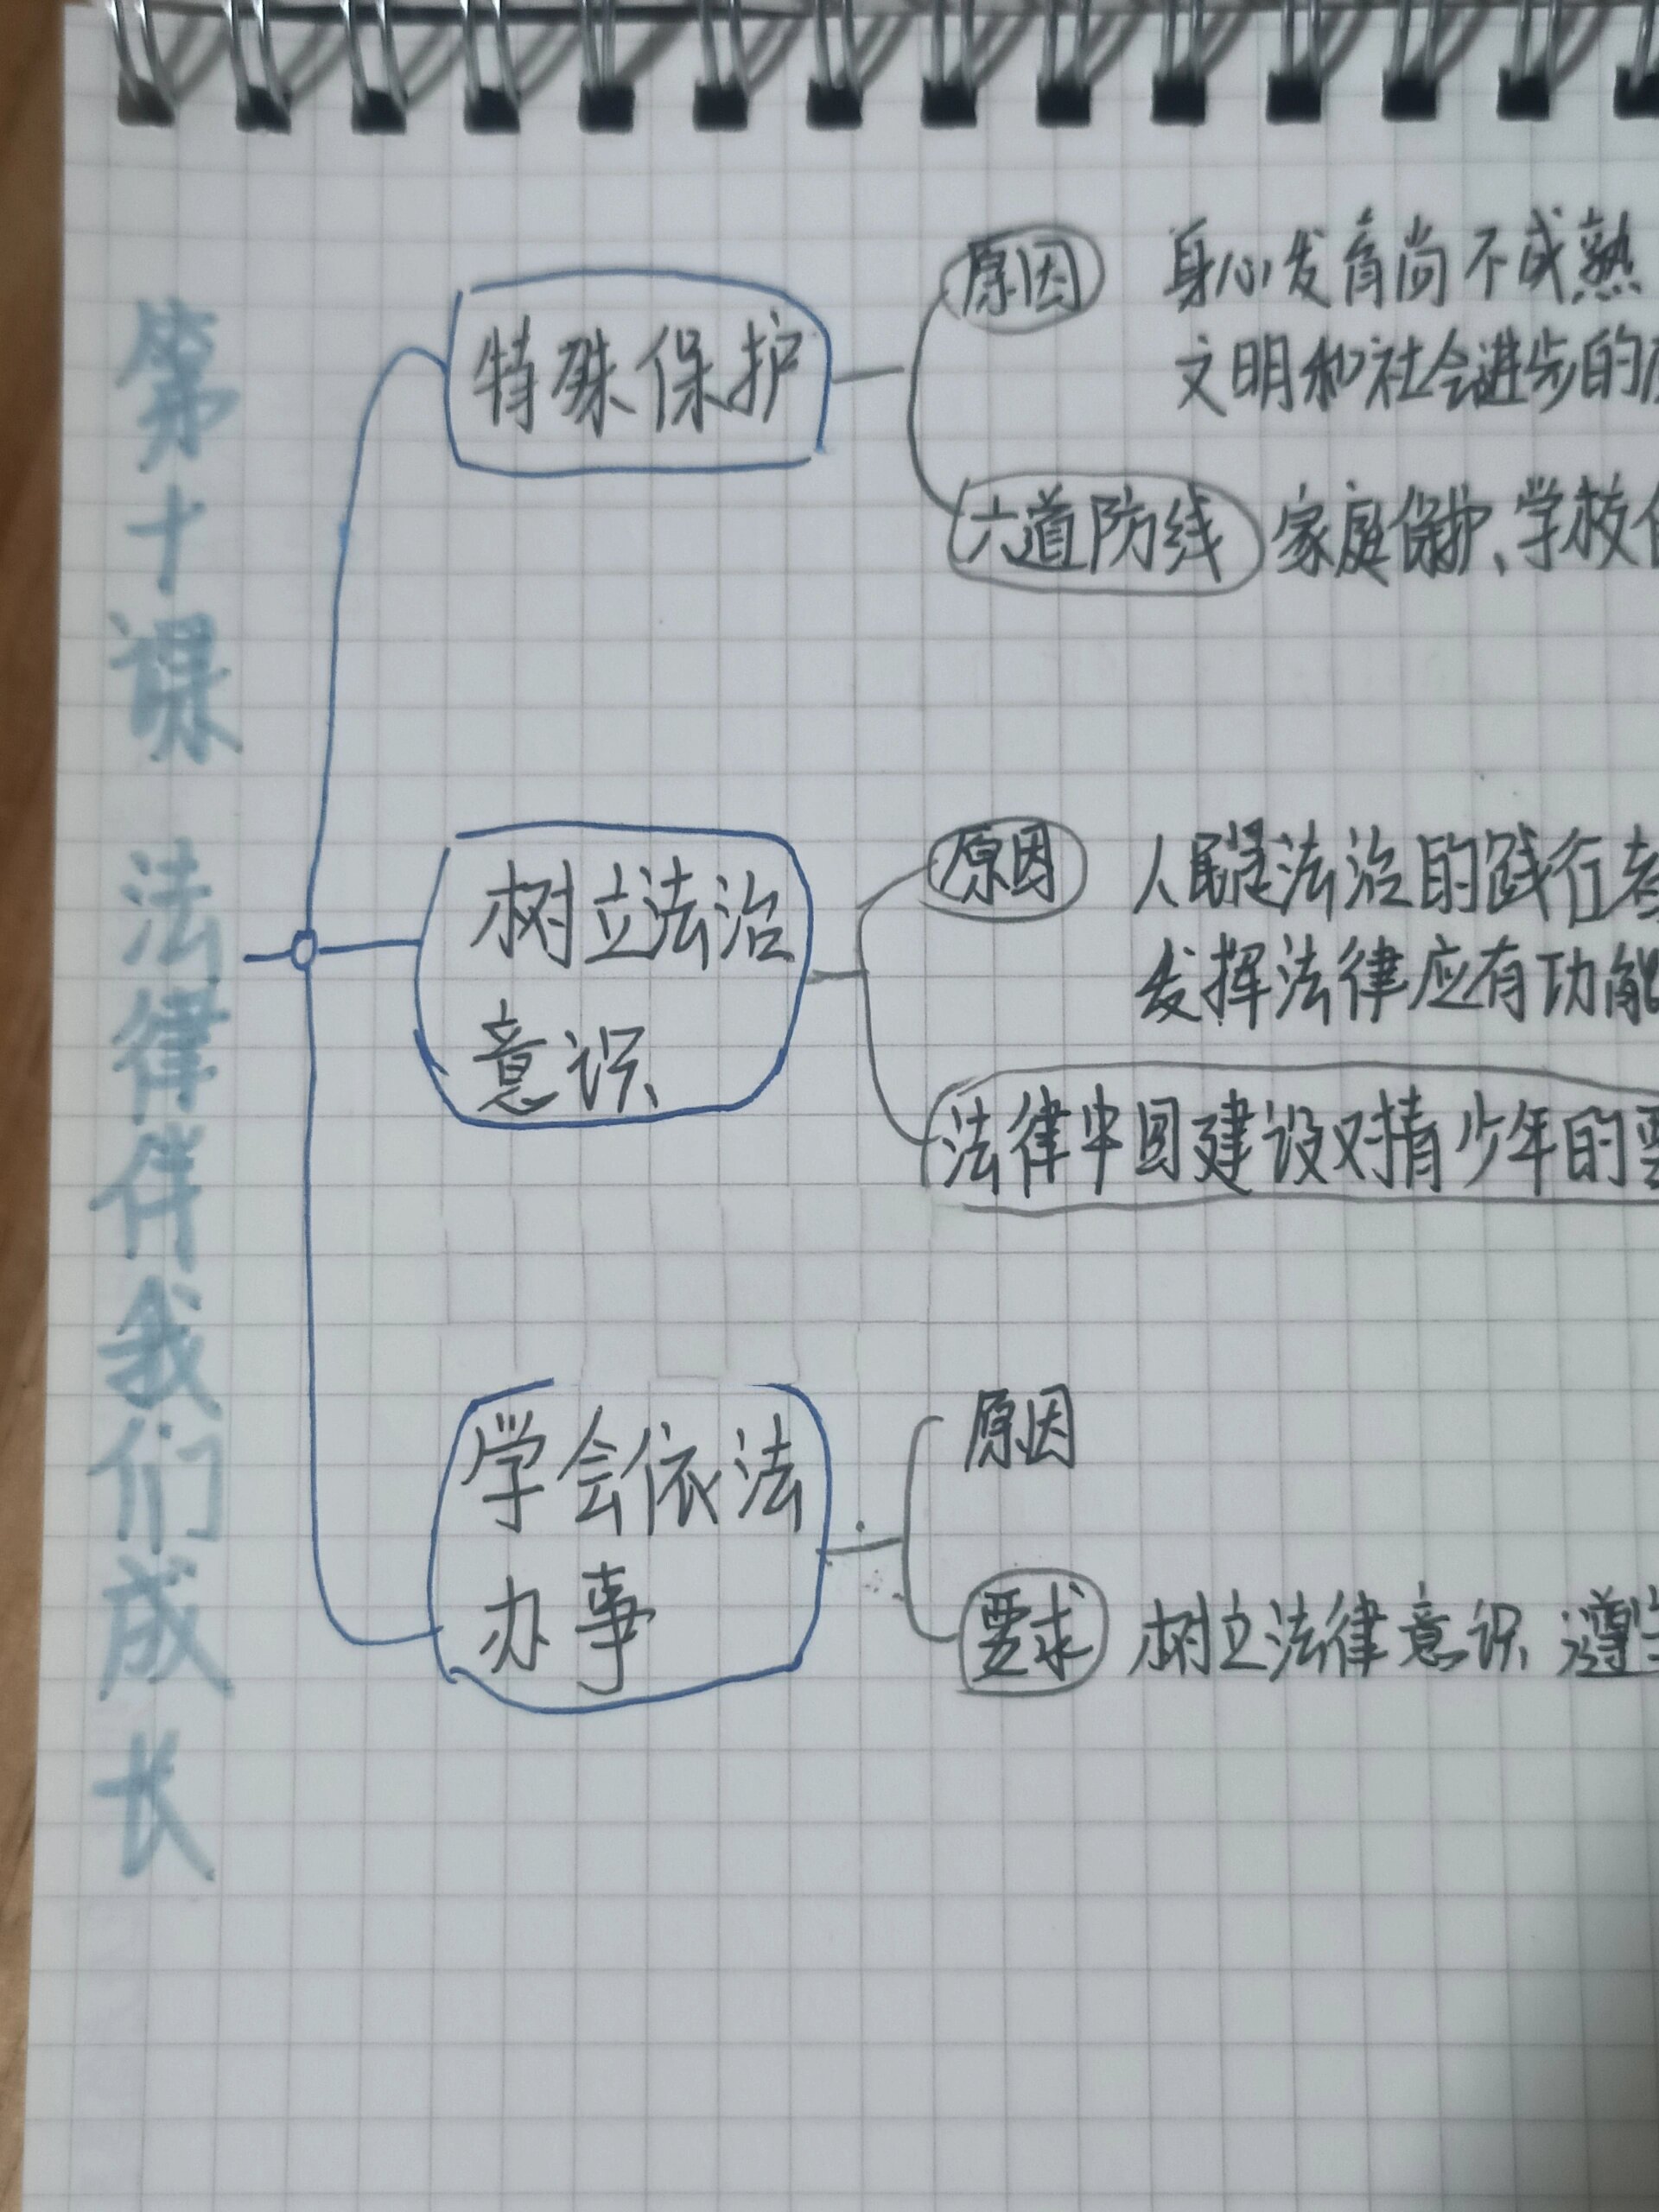 第十课 法律伴我们成长
特殊保护
原因 身心发育尚不成熟
文明和社会进步的
六道防线 家庭保护、学校
树立法治
意识
原因 人民是法治的践行者
发挥法律应有功能
法律中国建设对青少年的要
学会依法
办事
原因
要求 树立法律意识 遵